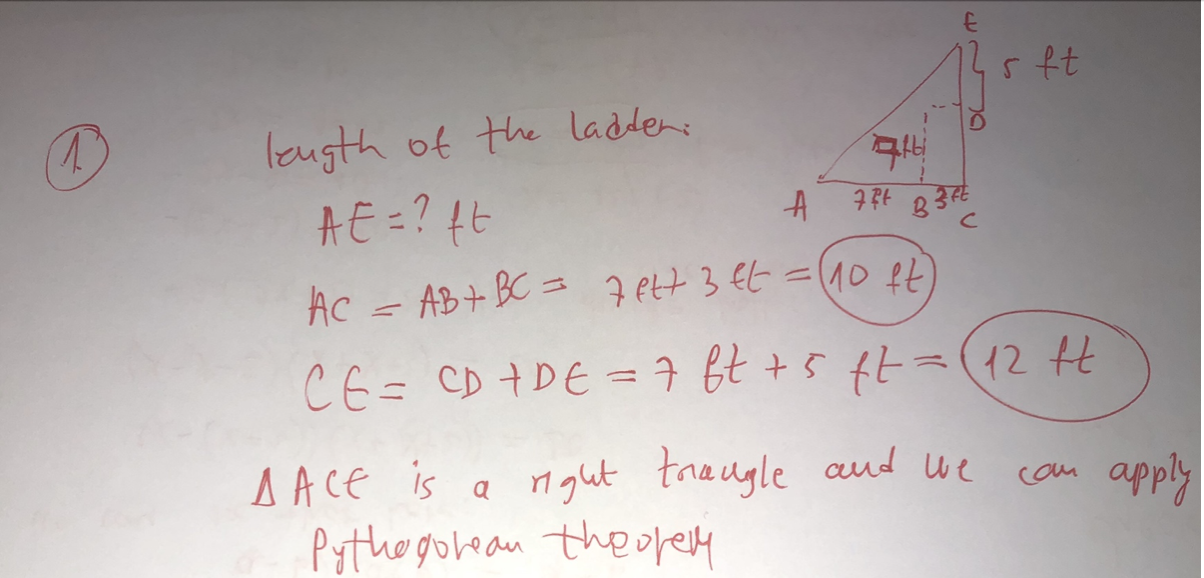 E
5 ft
D
7ft
A 7ft B 3ft
C
1.
length of the ladder:
AE = ? ft
AC = AB + BC = 7ft + 3ft = 10 ft
CE = CD + DE = 7 ft + 5 ft = 12 ft
Δ ACE is a right triangle and we can apply
Pythegorean theorem